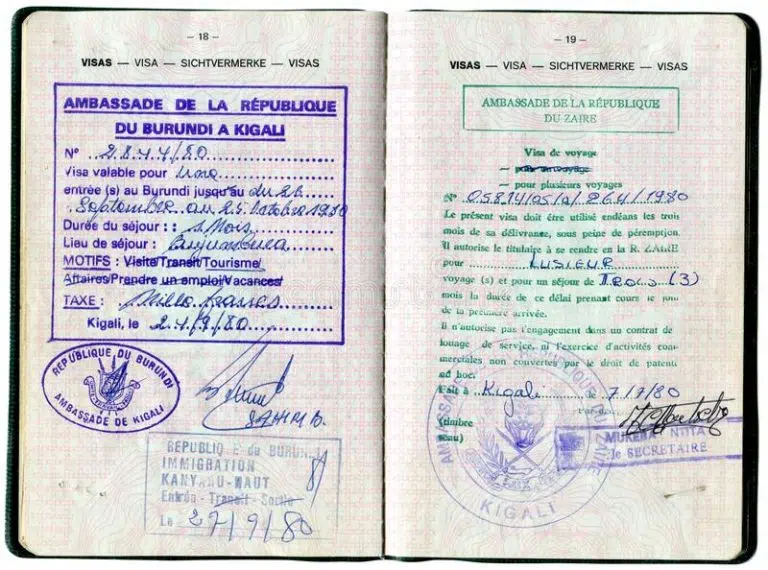 – 18 –
VISAS — VISA — SICHTVERMERKE — VISAS
AMBASSADE DE LA RÉPUBLIQUE
DU BURUNDI A KIGALI
N° 2844/80
Visa valable pour une
entrée (s) au Burundi jusqu'au du 26
Septembre au 25 Octobre 1980
Durée du séjour : 1 Mois
Lieu de séjour : Bujumbura
MOTIFS : Visite/Transit/Tourisme/
Affaires/Prendre un emploi/Vacances/
TAXE : Mille francs
Kigali, le 24/9/80
RÉPUBLIQUE DU BURUNDI
AMBASSADE DE KIGALI
REPUBLIQUE du BURUNDI
IMMIGRATION
KANYARU-HAUT
Entrée - Transit - Sortie
Le 27/9/80
– 19 –
VISAS — VISA — SICHTVERMERKE — VISAS
AMBASSADE DE LA RÉPUBLIQUE
DU ZAIRE
Visa de voyage
— pour un voyage
— pour plusieurs voyages
N° 05814/05/a/264/1980
Le présent visa doit être utilisé endéans les trois
mois de sa délivrance, sous peine de péremption.
Il autorise le titulaire à se rendre en la R. ZAIRE
pour LUSIEUR
voyage (s) et pour un séjour de TROIS (3)
mois la durée de ce délai prenant cours le jour
de la première arrivée.
Il n'autorise pas l'engagement dans un contrat de
louage de service, ni l'exercice d'activités com-
merciales non couvertes par le droit de patente
ad hoc.
Fait à Kigali de 7/7/80
(timbre
seau)
AMBASSADE REPUBLIQUE ZAIRE
KIGALI
le SECRETAIRE